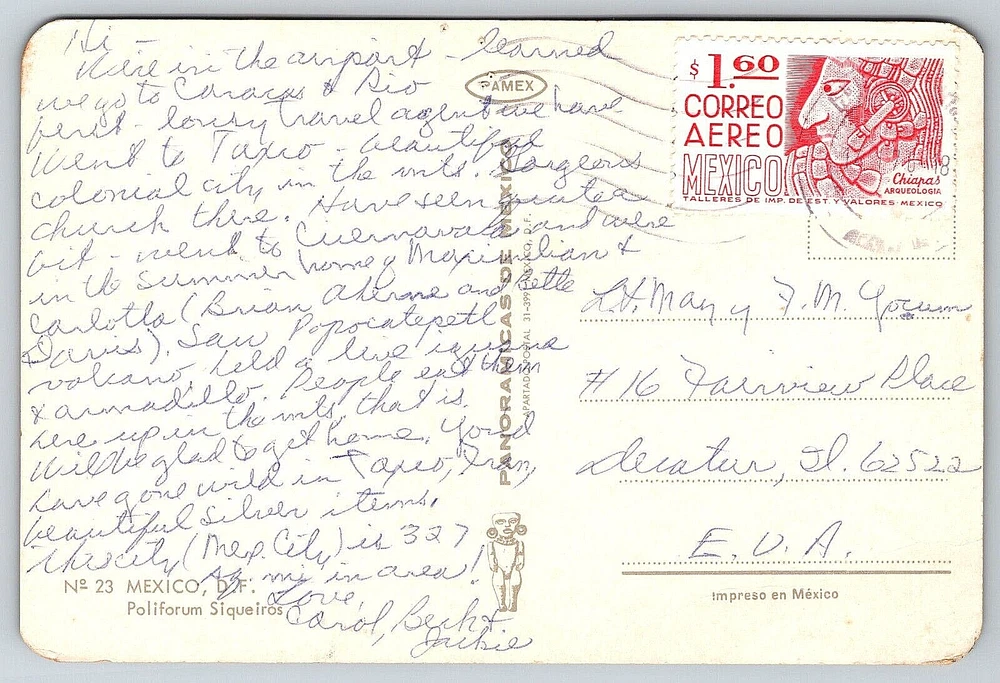 Hi -
We're in the airport - learned
we go to Caracas & Rio
first - lousy travel agent we have
Went to Taxco - beautiful
colonial city in the mts. Gorgeous
church there. Have seen quite a
bit - went to Cuernavaca and were
in the summer home of Maximilian &
Carlotta (Brian Aherne and Bette
Davis). Saw Popocatepetl
volcano, held a live iguana
& armadillo. People eat them
here up in the mts, that is.
Will be glad to get home. You'd
have gone wild in Taxco, Fran,
beautiful silver items.
This city (Mex. City) is 327
sq. mi. in area!
Love,
Carol, Beck &
Jackie
Nº 23 MEXICO, D.F.
Poliforum Siqueiros
PAMEX
PANORAMICAS DE MEXICO
APARTADO POSTAL 31-399 MEXICO, D.F.
$1.60
CORREO
AEREO
MEXICO
Chiapas
ARQUEOLOGIA
TALLERES DE IMP. DE EST. Y VALORES-MEXICO
F. M. Yocum
# 16 Fairview Place
Decatur, Il. 62522
E. U. A.
Impreso en México